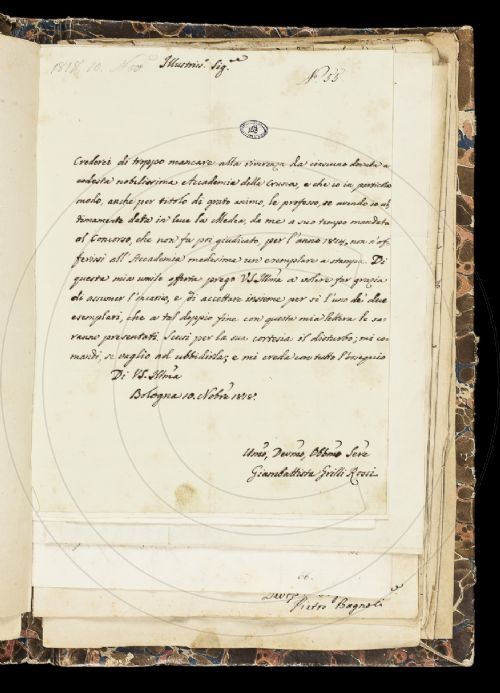 1818. 10. Nov.
Illustris.o Sig.re
N.o 55
Crederei di troppo mancare alla riverenza da ciascuno dovuta a
codesta nobilissima Accademia della Crusca, e che io in particolar
modo, anche per titolo di grato animo, le professo, se avendo io ul-
timamente data in luce la Medea, da me a suo tempo mandata
al Concorso, che non fu poi giudicato, per l'anno 1814, non n'of-
ferissi all'Accademia medesima un esemplare a stampa. Di
questa mia umile offerta prego VS. Illma a volere far grazia
di assumer l'incarico, e di accettare insieme per sè l'uno de' due
esemplari, che a tal doppio fine con questa mia lettera le sa-
ranno presentati. Scusi per la sua cortesia il disturbo; mi co-
mandi, se vaglio ad ubbidirla; e mi creda con tutto l'ossequio
Di VS. Illma
Bologna 10. Nobre 1818.
Umo, Devmo, Obbmo Serve
Giambattista Grilli Rossi
Pietro Bagnoli